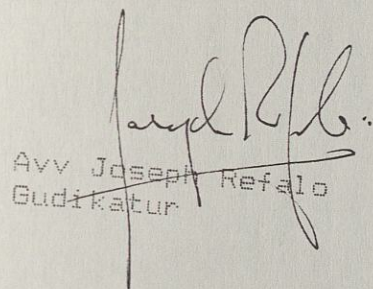 Joseph Refalo
Avv Joseph Refalo
Gudikatur